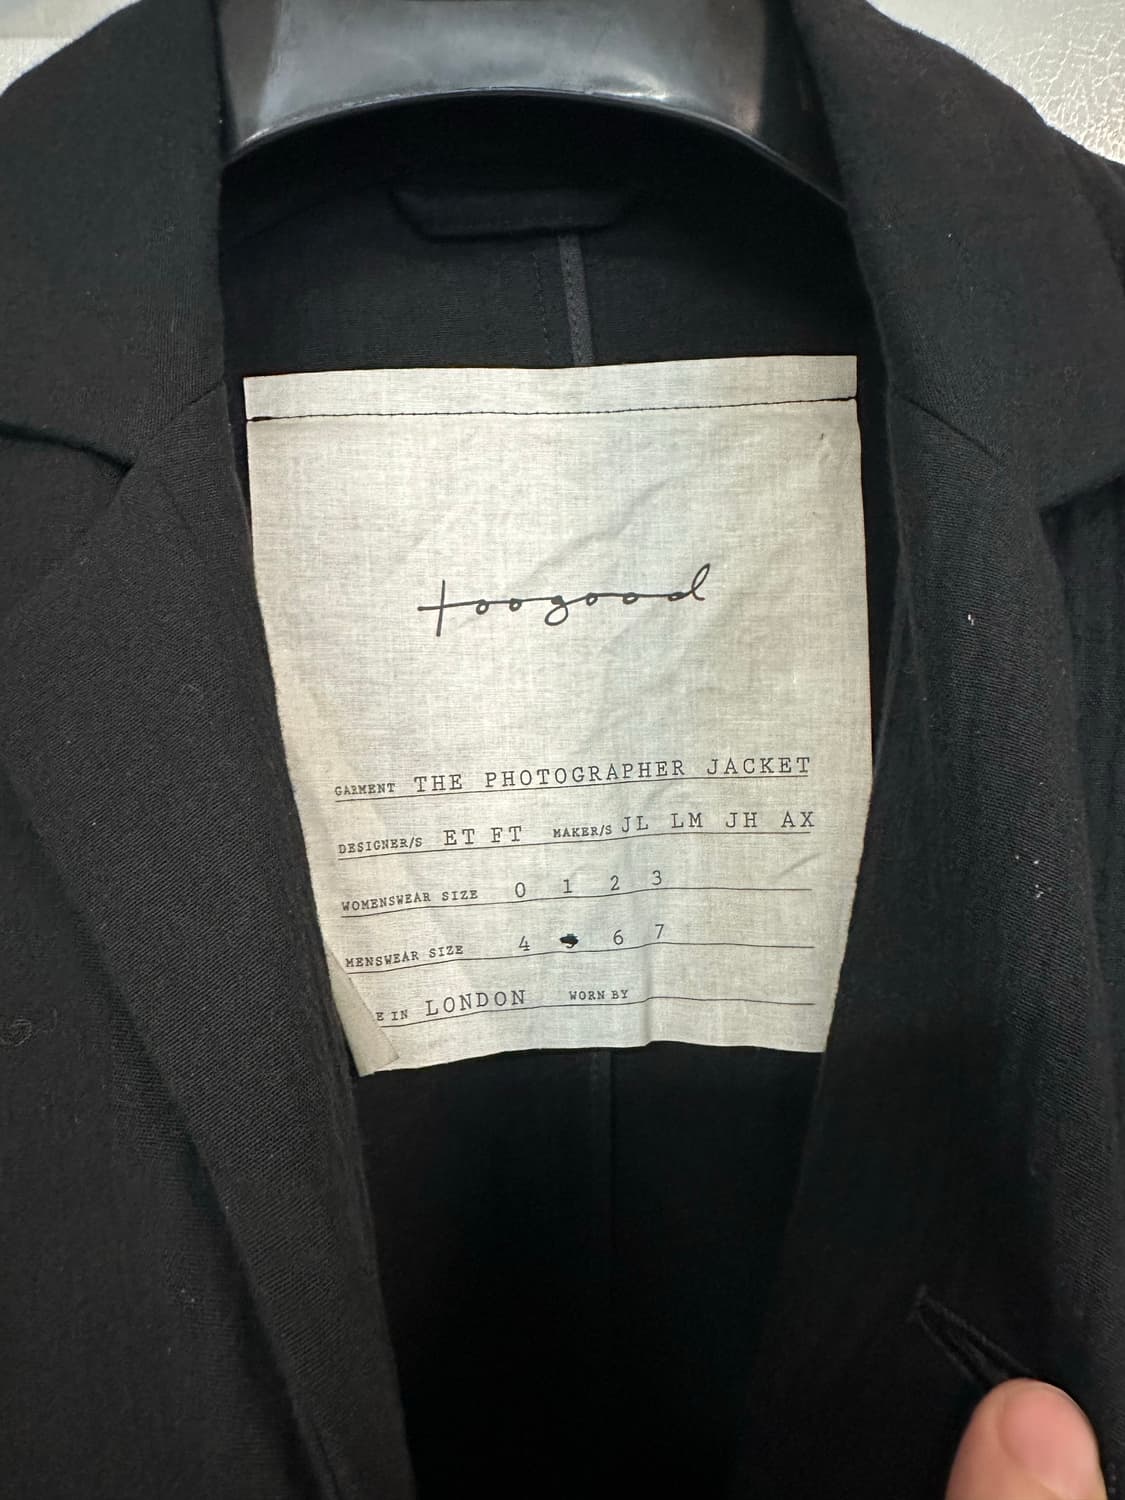 toogood
GARMENT THE PHOTOGRAPHER JACKET
DESIGNER/S ET FT MAKER/S JL LM JH AX
WOMENSWEAR SIZE 0 1 2 3
MENSWEAR SIZE 4 5 6 7
E IN LONDON WORN BY